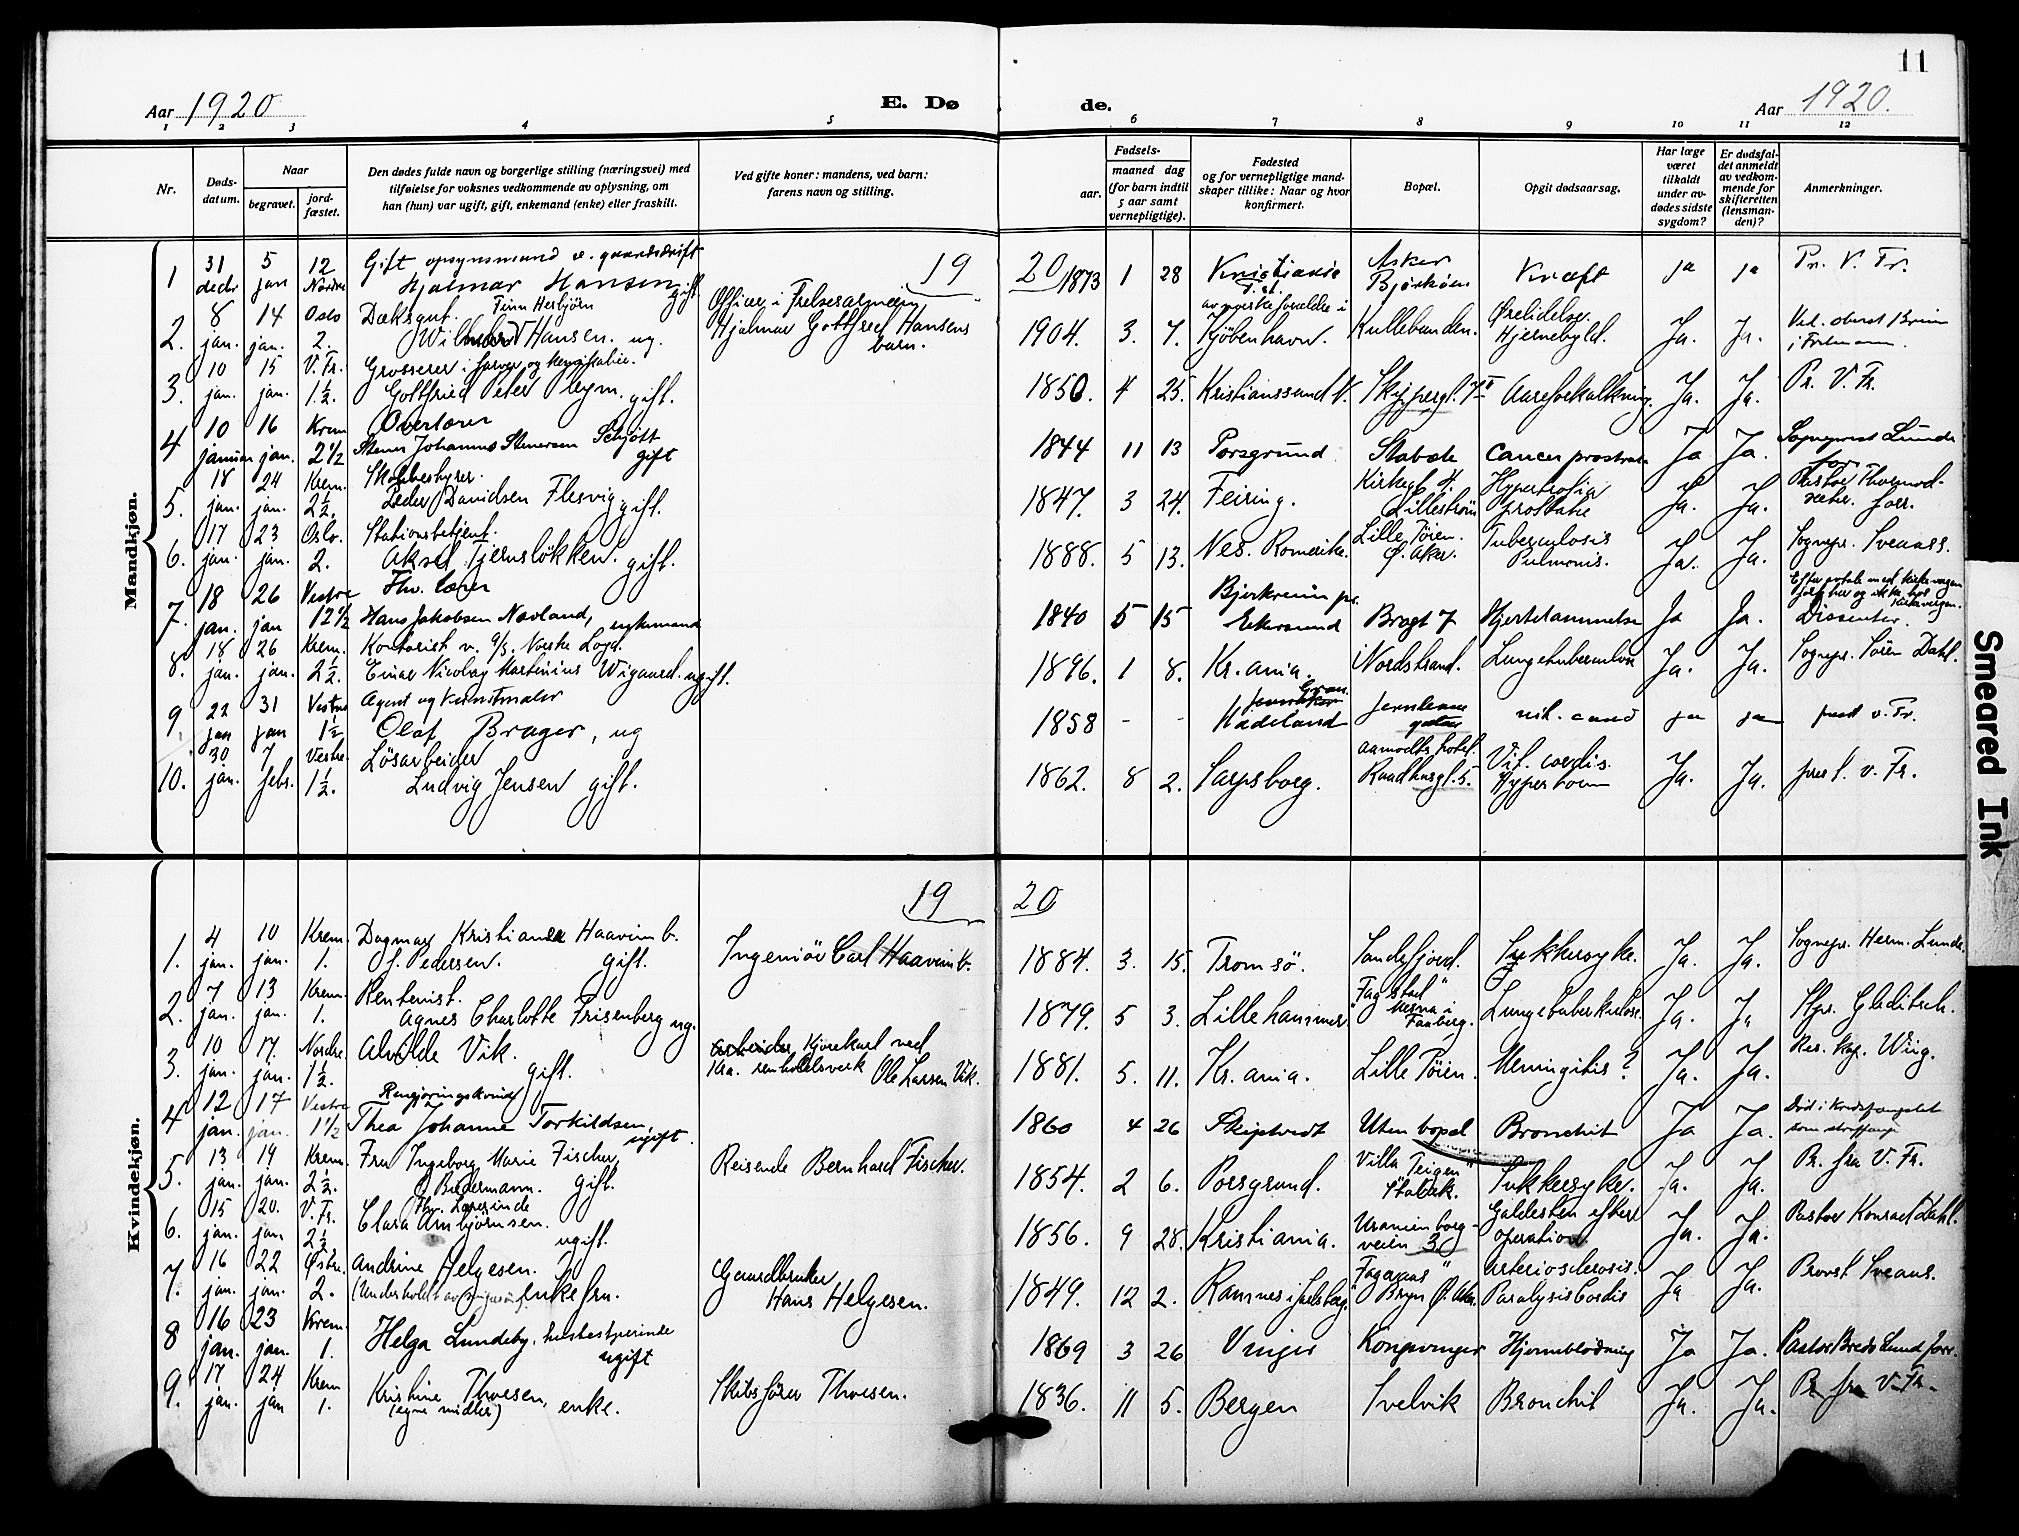 11
Aar 1920
E. Døde.
Aar 1920.
1 2 3 4 5 6 7 8 9 10 11 12
Nr.
Døds-
datum.
Naar
begravet.
jord-
fæstet.
Den dødes fulde navn og borgerlige stilling (næringsvei) med
tilføielse for voksnes vedkommende av oplysning, om
han (hun) var ugift, gift, enkemand (enke) eller fraskilt.
Ved gifte koner: mandens, ved barn:
farens navn og stilling.
Fødsels-
aar.
maaned dag
(for barn indtil
5 aar samt
vernepligtige).
Fødested
og for vernepligtige mand-
skaper tillike: Naar og hvor
konfirmert.
Bopæl.
Opgit dødsaarsag.
Har læge
været
tilkaldt
under av-
dødes sidste
sygdom?
Er dødsfal-
det anmeldt
av vedkom-
mende for
skifteretten
(lensman-
den)?
Anmerkninger.
Mandkjøn.
19 20
31 5 12 Gift opsynsmand v. gaardsdrift Asker
1 decbr jan Nordre Hjalmar Hansen gift 1873 1 28 Kristiania Bjerkåsen Kræft ja ja Pr. V. Fr.
8 14 Oslo Dæksgut. Officer i Frelsesarmeen av norske forældre i Ørelidelse.
2. jan. jan. 2. Hansen. ug. Hjalmar Gottfred Hansens barn. 1904. 3. 7. Kjøbenhavn. Kullebunden. Hjernebyld. Ja. Ja.
10 15 V. Fr. Grosserer.
3. jan. jan. 1½. Gottfried Peter gift. 1850. 4 25. Kristianssund N. Skippergt. 7 Aareforkalkning. Ja. Ja. Pr. V. Fr.
10 16 Krem Overlærer
4 januar jan. 2½ Stener Johannes Stenersen Schjøtt gift 1844 11 13 Porsgrund Stabæk Cancer prostata Ja Ja. Sogneprest Lunde
18 24 Krem. Skolebestyrer. Kirkegt. Hypertrofia
5. jan. jan. 2½. Peder Davidsen Flesvig. gift. 1847. 3 24. Feiring. Lillestrøm prostatae Ja. Ja. Pastor
17 23 Oslo. Stationsbetjent. Lille Tøien. Tuberculosis
6. jan. jan. 2. Aksel Tjernsløkken. gift. 1888. 5 13. Nes. Romerike. Ø. Aker. Pulmonis. Ja. Ja. Sognepr. Sveaas.
18 26 Vestre Fhv. lærer Bjerkreim pr.
7. jan. jan 12½ Hans Jakobsen Navland, enkemand 1840 5 15 Ekersund Bragt 7 Hjertelammelse Ja Ja. Dissenter.
18 26 Krem. Kontorist v. A/S. Norske Loyd.
8. jan. jan. 2½. Einar Nicolay Martinius Wigaard. ugift. 1896. 1 8. Kr.ania. Nordstrand. Lungetuberculose Ja. Ja. Sognepr. Sören Dahl.
22 31 Vestre Agent og Kunstmaler Gran
9. jan jan 1½ Olaf Brager, ug 1858 - - Hadeland vit. cord ja ja prest v. Fr.
30 7 Vestre. Løsarbeider Aamodts hotel. Vit. cordis.
10. jan. febr. 1½. Ludvig Jensen gift. 1862. 8 2. Sarpsborg. Raadhusgt. 5. Ja. Ja. prest. v. Fr.
Kvindekjøn.
19 20
4 10 Krem. Dagmar Kristiane Haavimb.
1. jan. jan. 1. f. Pedersen. gift. Ingeniør Carl Haavimb. 1884. 3. 15. Tromsö. Sandefjord. Sukkersyke. Ja. Ja. Sognepr. Herm. Lunde.
7 13 Krem. Rentenist. "Fagstad"
2. jan. jan. 1. Agnes Charlotte Frisenberg ug. 1879. 5 3. Lillehammer. Mesna i Faaberg. Lungetuberkulose. Ja. Ja Spr. Gladitsch.
10 17. Nordre. Arbeider Kjörekarl ved
3. jan. jan. 1½. Alvilde Vik. gift. Kra. renholdsverk Ole Larsen Vik. 1881. 5. 11. Kr.ania. Lille Tøien. Meningitis? Ja. Ja. Res. Kap. Wiig.
12 17 Vestre Rengjøringskvinde
4 jan. jan. 1½ Thea Johanne Torkildsen, ugift. 1860 4 26 Skiptvedt Uten bopæl Bronchit Ja Ja. Død i Kredsfængslet som straffange
13 19 Krem. Fru Ingeborg Marie Fischer, "Villa Teigen"
5. jan. jan. 2½. f. Budermann. gift. Reisende Bernhard Fischer. 1854. 2 6. Porsgrund. Stabæk. Sukkersyke. Ja. Ja. Pr. fra V. Fr.
15 20. V. Fr. Fhv. Lærerinde Uranienborg- Galdesten efter
6. jan. jan 2½ Clara Arnbjörnsen. ugift. 1856. 9 28. Kristiania. veien 3 operation Ja. Ja. Pastor Konrad Dahl.
16 22 Østre. Andrine Helgesen. Gaardbruker "Fagernes" Arteriosclerosis.
7. jan. jan. 2. enkefru. Hans Helgesen. 1849. 12 2. Ramnes i Jarlsberg. Bryn Ø. Aker. Paralysis Cordis Ja Ja. Provst Sveaas.
16 23 Krem.
8 jan. jan. 1. Helga Lundeby, husbestyrerinde ugift 1869 3 26 Vinger Kongsvinger Hjerneblødning Ja Ja. Pastor Lund forr.
17 24 Krem
9. jan. jan 1. Kristine Thoesen, (egne midler) enke. Skibsfører Thoesen. 1836. 11 5. Bergen Svelvik Bronchit Ja. Ja. Pr. fra V. Fr.
Smeared Ink